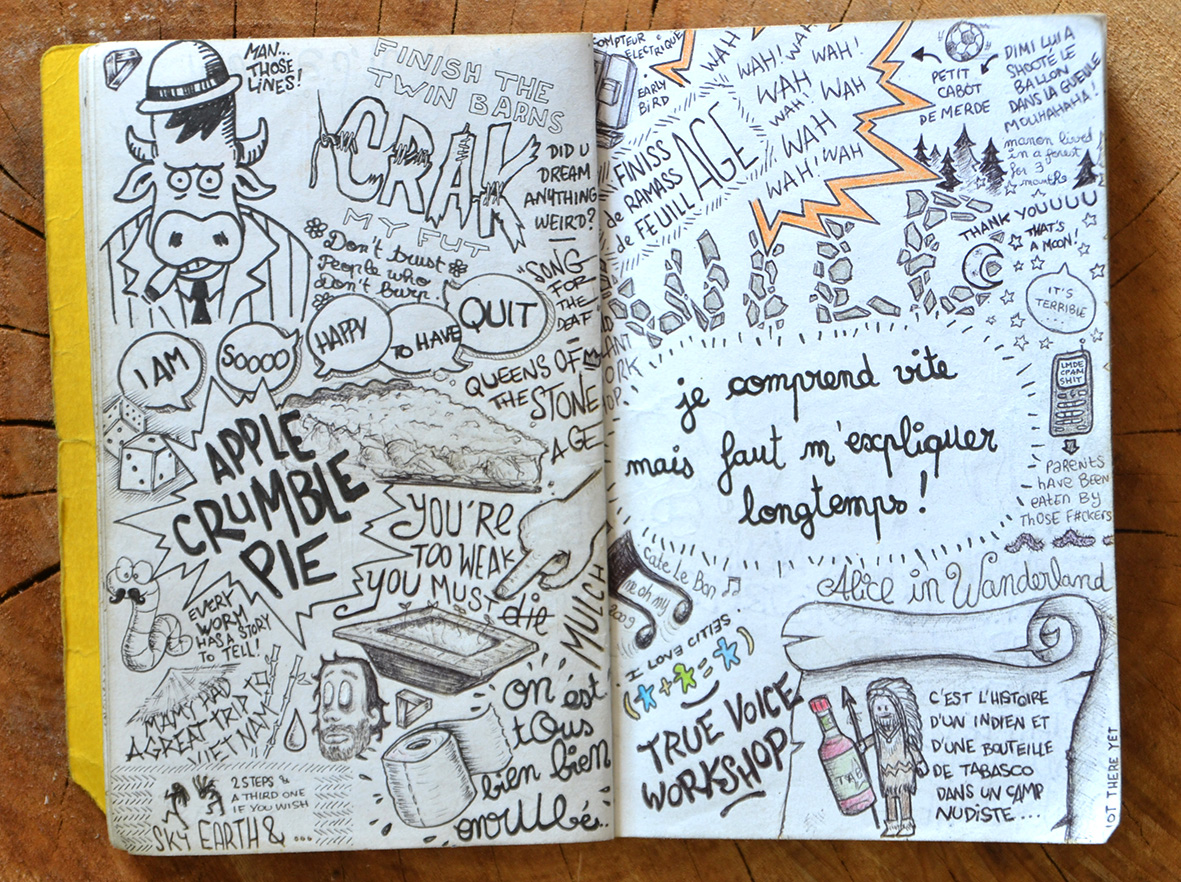 MAN...
THOSE
LINES!
FINISH THE
TWIN BARNS
CRAK
MY FUT
DID U
DREAM
ANYTHING
WEIRD?
Don't trust
People who
Don't burp!
"SONG
FOR
THE
DEAF"
I AM
SOOOO
HAPPY
TO HAVE
QUIT
QUEENS OF
THE STONE
AGE
APPLE
CRUMBLE
PIE
YOU'RE
TOO WEAK
YOU MUST die
MULCH
EVERY
WORM
HAS A STORY
TO TELL!
MAMY HAD
A GREAT TRIP TO
VIETNAM
on est
tOus
bien bien
2 STEPS &
A THIRD ONE
IF YOU WISH
SKY EARTH & ...
COMPTEUR
ELECTRIQUE
EARLY
BIRD
WAH
WAH! WAH
WAH WAH!
WAH! WAH
WAH
WAH! WAH
WAH!
FINISS AGE
de RAMASS
de FEUILL
PETIT
CABOT
DE MERDE
DIMI LUI A
SHOOTÉ LE
BALLON
DANS LA GUEULE
MOUHAHAHA!
manon lived
in a forest
for 3
months
THANK YOUUUU
THAT'S
A MOON!
IT'S
TERRIBLE
NULL
je comprend vite
mais faut m'expliquer
longtemps!
LMDE
CPAM
SHIT
PARENTS
HAVE BEEN
EATEN BY
THOSE F#CKERS
Cate Le Bon
me oh my
2009
Alice in Wanderland
I LOVE CITIES
TRUE VOICE
WORKSHOP
TAB
C'EST L'HISTOIRE
D'UN INDIEN ET
D'UNE BOUTEILLE
DE TABASCO
DANS UN CAMP
NUDISTE...
NOT THERE YET